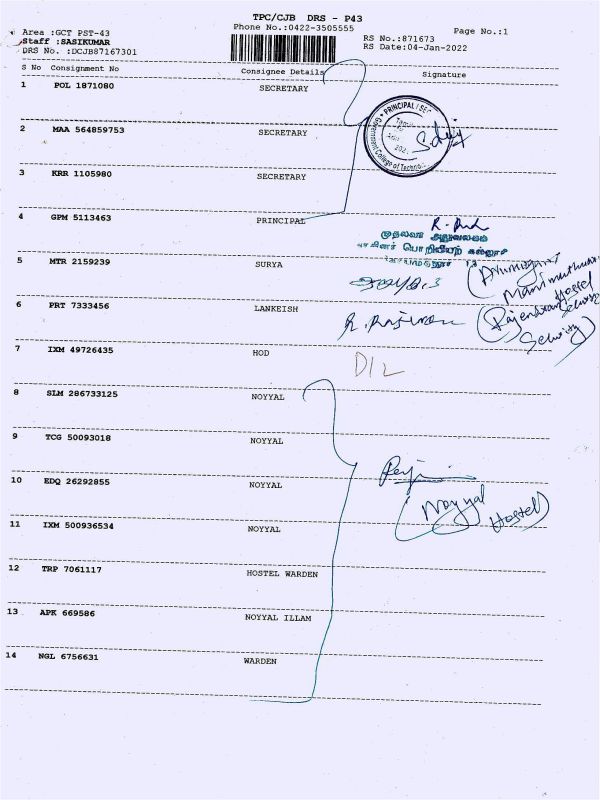 TPC/CJB DRS - P43
Area :GCT PST-43
Phone No.:0422-3505555
Page No.:1
Staff :SASIKUMAR
RS No.:871673
DRS No. :DCJB87167301
RS Date:04-Jan-2022
S No Consignment No Consignee Details Signature
1 POL 1871080 SECRETARY
PRINCIPAL / SEC
Government College of Technol
2 MAA 564859753 SECRETARY
3 KRR 1105980 SECRETARY
4 GPM 5113463 PRINCIPAL
முதல்வர் அலுவலகம்
பொறியியற் கல்லூரி
5 MTR 2159239 SURYA
6 PRT 7333456 LANKEISH
Hostel
Security
7 IXM 49726435 HOD
8 SLM 286733125 NOYYAL
9 TCG 50093018 NOYYAL
10 EDQ 26292855 NOYYAL
(Noyyal Hostel)
11 IXM 500936534 NOYYAL
12 TRP 7061117 HOSTEL WARDEN
13 APK 669586 NOYYAL ILLAM
14 NGL 6756631 WARDEN